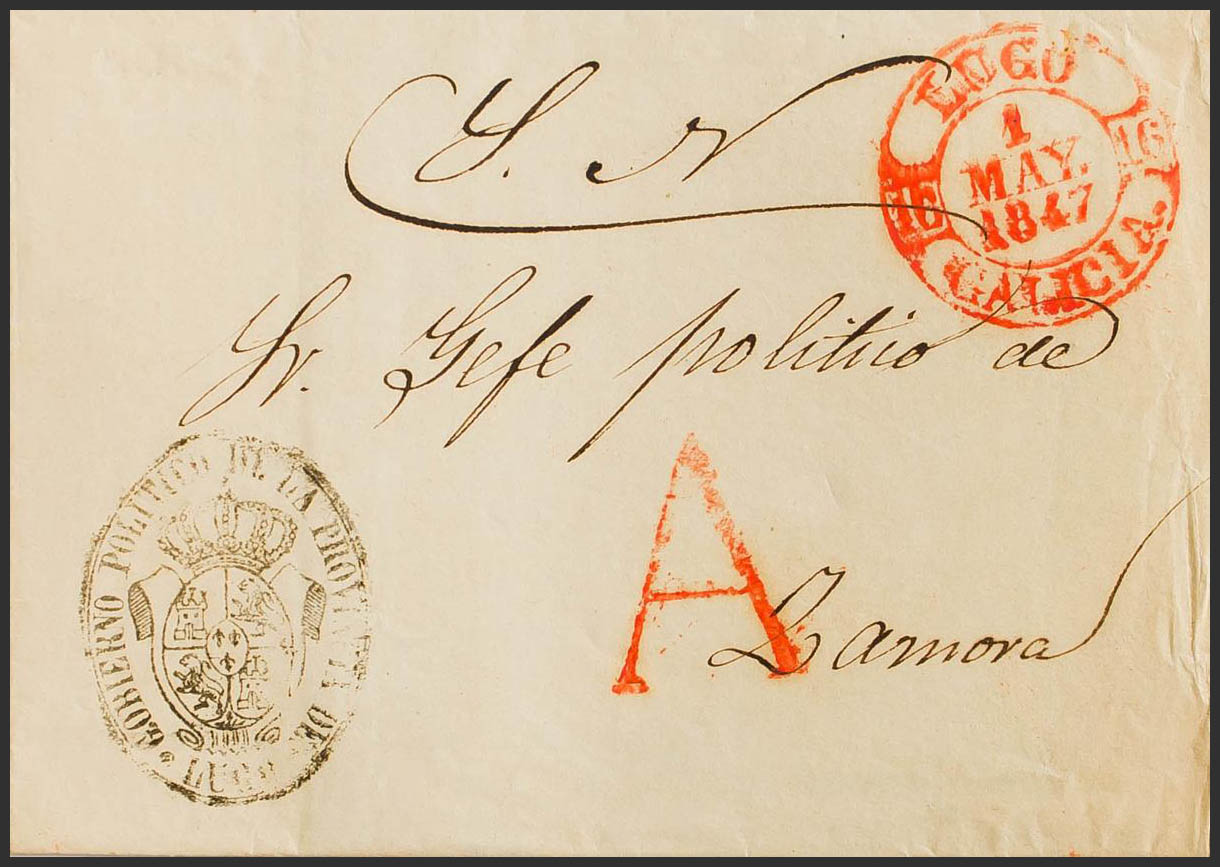 S. N
LUGO
1
MAY.
1847
16
16
GALICIA.
Sr. Gefe politico de
A
Zamora
GOBIERNO POLITICO DE LA PROVINCIA DE
LUGO